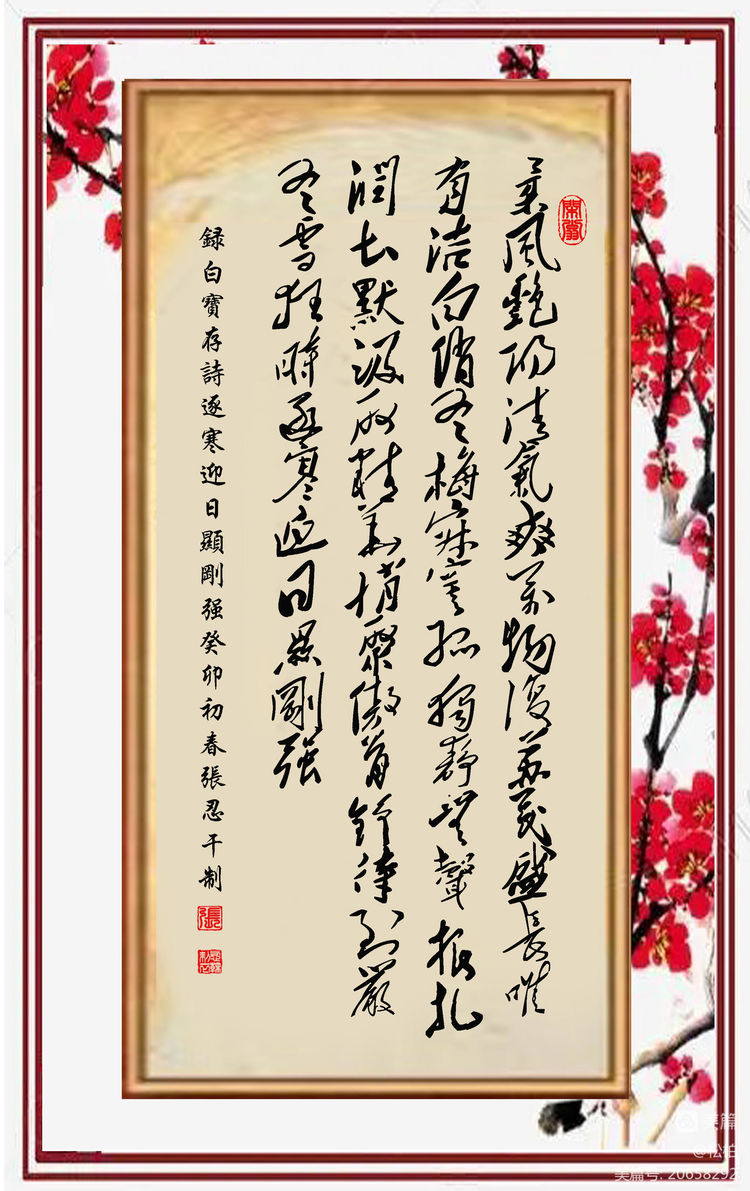 柔風艷陽清氣爽萬物復蘇茂盛長唯
有洁白俏冬梅寂寞孤獨靜無聲根扎
潤土默汲精積聚傲骨鋒待到嚴
冬雪狂時逐寒迎日顯剛强
録白寶存詩逐寒迎日顯剛强癸卯初春張忍千制
張
美篇
@松柏
美篇号: 20658292